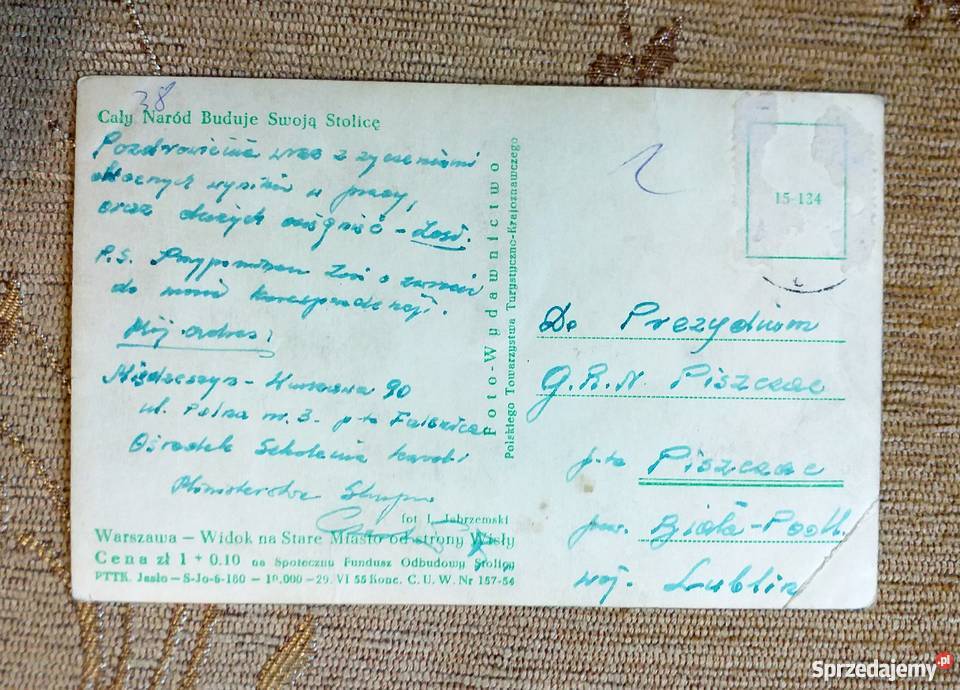 38
Cały Naród Buduje Swoją Stolicę
Pozdrowienia wraz z życzeniami
owocnych wyników w pracy,
oraz dużych osiągnięć -
P.S. Przypominam o zwrocie
do mnie korespondencji.
Mój adres:
Miedzeszyn - Warszawa 90
ul. Polna nr. 3. p-ta Falenica
Ośrodek Szkolenia Kadr
Ministerstwa Skupu
fot I. Jabrzemski
Warszawa — Widok na Stare Miasto od strony Wisły
Cena zł 1 + 0.10 na Społeczny Fundusz Odbudowy Stolicy
PTTK. Jasło — S-Jo-6-160 — 10.000 — 29. VI 55 Konc. C. U. W. Nr 157-54
Foto-Wydawnictwo
Polskiego Towarzystwa Turystyczno-Krajoznawczego
15-134
Do Prezydium
G.R.N. Piszczac
p-ta Piszczac
pow. Biała-Podl.
woj. Lublin
Sprzedajemy.pl